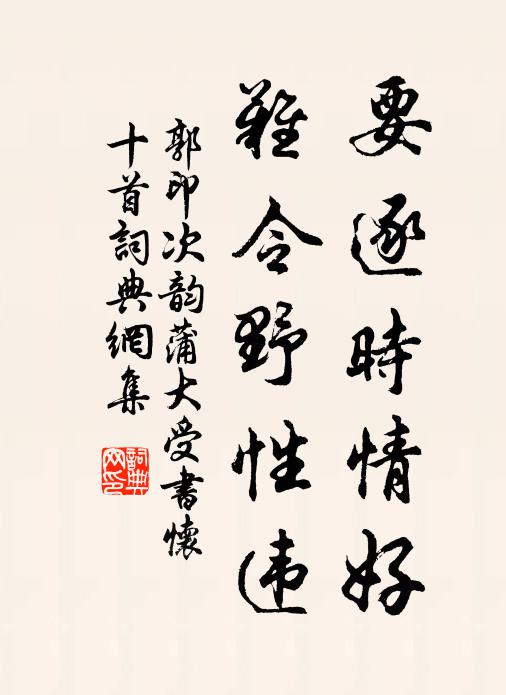 要逐时情好
難令野性违
郭印次韵蒲大受書懷
十首詞典網集
詞典网印